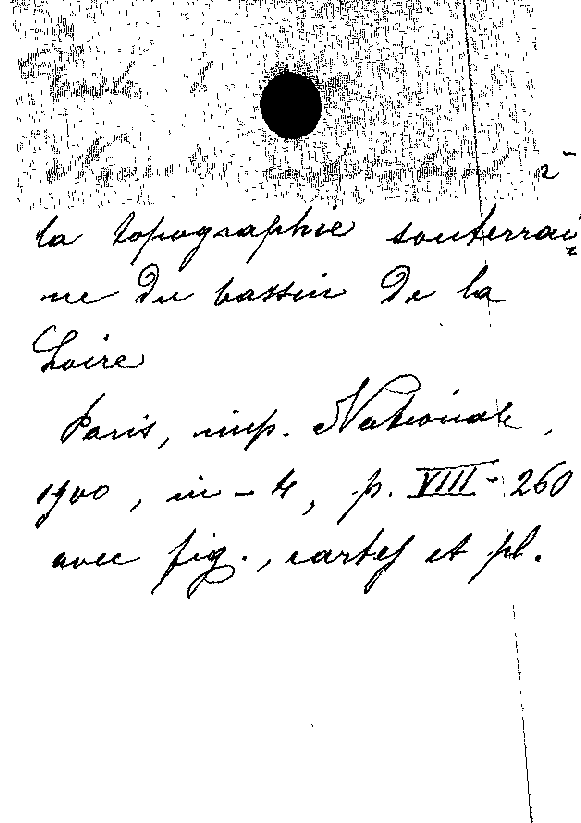 la topographie souterrai=
ne du bassin de la
Loire
Paris, imp. Nationale,
1900, in-4, p. VIII-260
avec fig., cartes et pl.